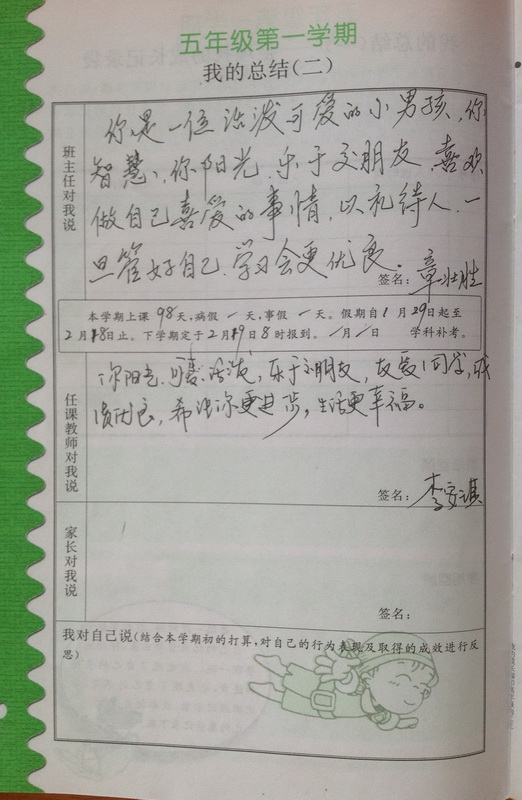 五年级第一学期
我的总结（二）
班主任对我说
你是一位活泼可爱的小男孩，你
智慧、你阳光、乐于交朋友，喜欢
做自己喜爱的事情，以礼待人，一
旦管好自己，学习会更优良。
签名：章壮胜
本学期上课98天，病假一天，事假一天。假期自1月29日起至
2月18日止。下学期定于2月19日8时报到。/月/日学科补考。
任课教师对我说
你阳光、可爱、活泼，乐于交朋友，友爱同学，成
绩优良，希望你更进步，生活更幸福。
签名：李安琪
家长对我说
签名：
我对自己说（结合本学期初的打算，对自己的行为表现及取得的成效进行反
思）